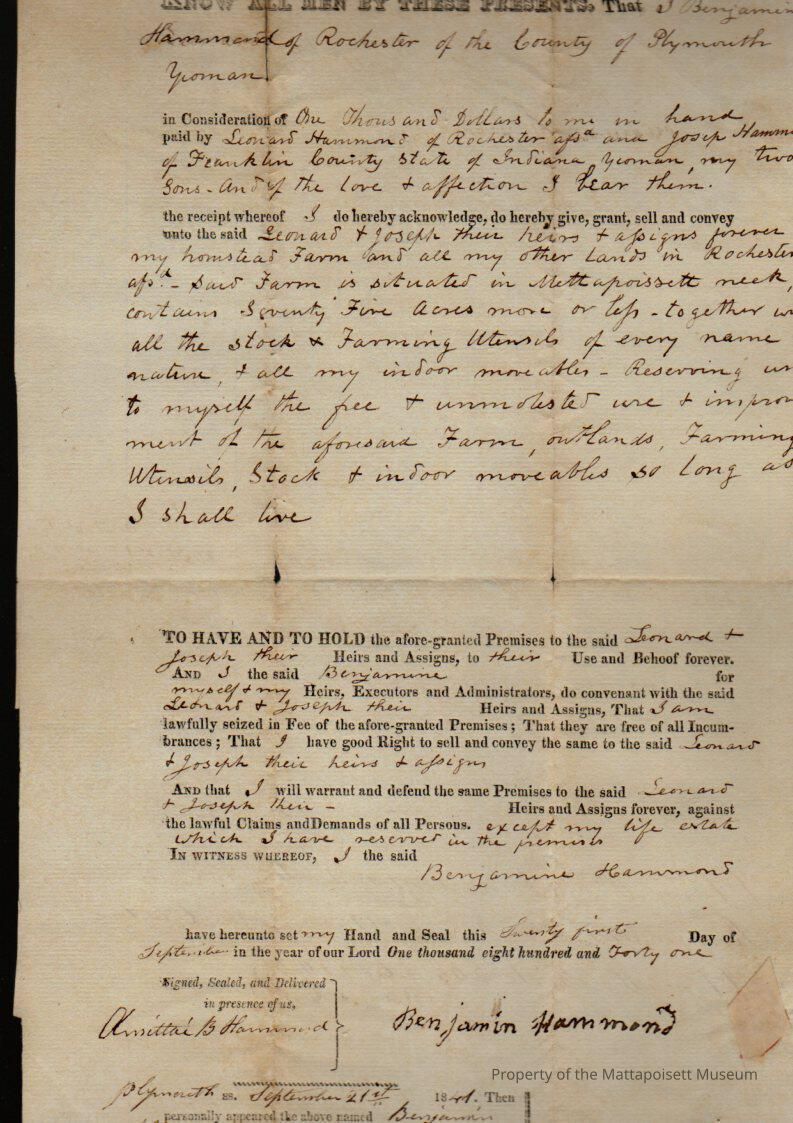 KNOW ALL MEN BY THESE PRESENTS, That I Benjamin
Hammond of Rochester of the County of Plymouth
Yeoman
in Consideration of One Thousand Dollars to me in hand
paid by Leonard Hammond of Rochester afsd and Josep Hamm
of Franklin County State of Indiana, Yeoman, my two
Sons - And of the love & affection I bear them.
the receipt whereof I do hereby acknowledge, do hereby give, grant, sell and convey
unto the said Leonard & Joseph their heirs & assigns forever
my homstead Farm and all my other Lands in Rochester
afsd - Said Farm is situated in Mettapoissett neck,
contains Seventy Five Acres more or less - together
all the stock & Farming Utensils of every name
nature, & all my indoor moveables - Reserving
to myself the free & unmolested use & improv
ment of the aforesaid Farm, outlands, Farming
Utensils, Stock & indoor moveables so long as
I shall live
TO HAVE AND TO HOLD the afore-granted Premises to the said Leonard &
Joseph their Heirs and Assigns, to their Use and Behoof forever.
AND I the said Benjamine for
myself & my Heirs, Executors and Administrators, do convenant with the said
Leonard & Joseph their Heirs and Assigns, That I am
lawfully seized in Fee of the afore-granted Premises; That they are free of all Incum-
brances; That I have good Right to sell and convey the same to the said Leonard
& Joseph their heirs & assigns
AND that I will warrant and defend the same Premises to the said Leonard
& Joseph their - Heirs and Assigns forever, against
the lawful Claims and Demands of all Persons. except my life estate
which I have reserved in the premises
IN WITNESS WHEREOF, I the said
Benjamine Hammond
have hereunto set my Hand and Seal this Twenty first Day of
September in the year of our Lord One thousand eight hundred and Forty one
Signed, Sealed, and Delivered
in presence of us,
Amittai B Hammond
Benjamin Hammond
Property of the Mattapoisett Museum
Plymouth ss. September 21st 1841. Then
personally appeared the above named Benjamin